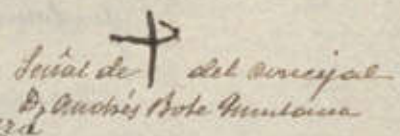 Señal de + del concejal
D. Andrés Bote Quintana